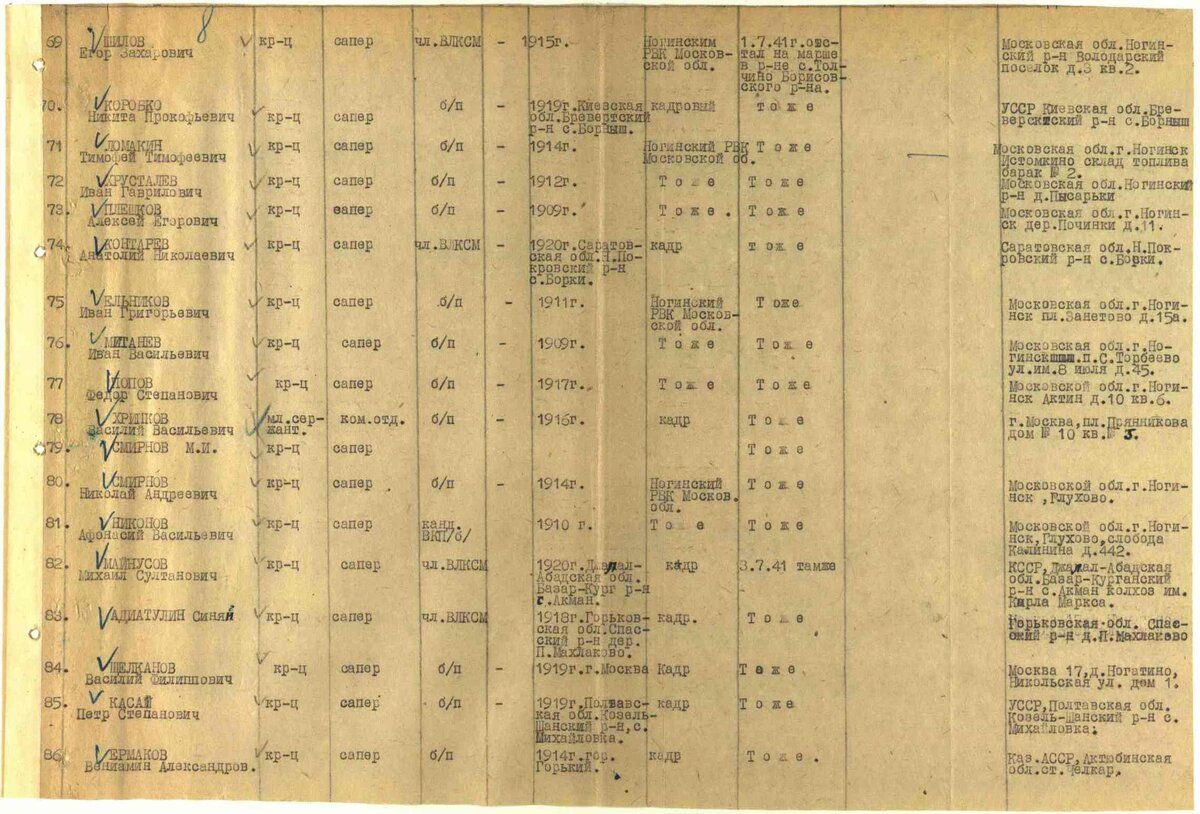 8
69 ШИЛОВ кр-ц сапер чл.ВЛКСМ - 1915г. Ногинским 1.7.41г.отс- Московская обл.Ногин-
Егор Захарович РВК Москов- тал на марше ский р-н Володарский
ской обл. в р-не с.Тол- поселок д.3 кв.2.
чино Борисов-
ского р-на.
70. КОРОБКО б/п - 1919г.Киевская кадровый тоже УССР Киевская обл.Бре-
Никита Прокофьевич кр-ц сапер обл.Бревертский верский р-н с.Борныш
р-н с.Борныш.
71 ЛОМАКИН кр-ц сапер б/п - 1914г. Ногинский РВК Тоже Московская обл.г.Ногинск
Тимофей Тимофеевич Московской об. Истомкино склад топлива
барак № 2.
72 ХРУСТАЛЕВ кр-ц сапер б/п - 1912г. Тоже Тоже Московская обл.Ногинский
Иван Гаврилович р-н д.Пысарьки
73. ПЛЕШКОВ кр-ц сапер б/п - 1909г. Тоже. Тоже Московская обл.г.Ногин-
Алексей Егорович ск дер.Починки д.11.
74. КОНТАРЕВ кр-ц сапер чл.ВЛКСМ - 1920г.Саратов- кадр тоже Саратовская обл.Н.Пок-
Анатолий Николаевич ская обл.Н.По- ровский р-н с.Борки.
кровский р-н
с.Борки.
75 ЕЛЬНИКОВ кр-ц сапер б/п - 1911г. Ногинский Тоже Московская обл.г.Ноги-
Иван Григорьевич РВК Москов- нск пл.Занетово д.15а.
ской обл.
76. МИТАНЕВ кр-ц сапер б/п - 1909г. Тоже Тоже Московская обл.г.Но-
Иван Васильевич п.С.Торбеево
ул.им.8 июля д.45.
77 ПОПОВ кр-ц сапер б/п - 1917г. Тоже Тоже Московской обл.г.Ноги-
Федор Степанович нск Актин д.10 кв.6.
78 ХРИПКОВ мл.сер- ком.отд. б/п - 1916г. кадр Тоже г.Москва,пл.Прянникова
Василий Васильевич жант. дом № 10 кв.№
79. СМИРНОВ М.И. кр-ц сапер Тоже
80. СМИРНОВ кр-ц сапер б/п - 1914г. Ногинский Тоже Московской обл.г.Ноги-
Николай Андреевич РВК Москов. нск ,Глухово.
обл.
81. НИКОНОВ кр-ц сапер канд. - 1910 г. Тоже Тоже Московской обл.г.Ноги-
Афонасий Васильевич ВКП/б/ нск,Глухово,слобода
Калинина д.442.
82. МАЙНУСОВ кр-ц сапер чл.ВЛКСМ - 1920г.Джалал- кадр 3.7.41 тамже КССР,Джалал-Абадская
Михаил Султанович Абадская обл. обл.Базар-Курганский
Базар-Кург р-н р-н с.Акман колхоз им.
с.Акман. Карла Маркса.
83. АДИАТУЛИН Синяй кр-ц сапер чл.ВЛКСМ - 1918г.Горьков- кадр. Тоже Горьковская обл. Спас-
ская обл.Спас- ский р-н д.П.Махлаково
ский р-н дер.
П.Махлаково.
84. ШЕЛКАНОВ кр-ц сапер б/п - 1919г.г.Москва Кадр Тоже Москва 17,д.Ногатино,
Василий Филиппович Никольская ул. дом 1.
85. КАСАЙ кр-ц сапер б/п - 1919г.Полтавс- кадр Тоже УССР,Полтавская обл.
Петр Степанович кая обл.Козель- Козель-Шанский р-н с.
Шанский р-н,с. Михайловка.
Михайловка.
86. ЕРМАКОВ кр-ц сапер б/п - 1914г.гор. кадр Тоже. Каз.АССР,Актюбинская
Вениамин Александров. Горький. обл.ст.Челкар.